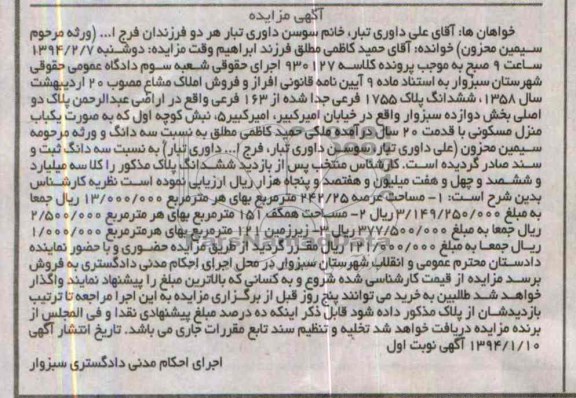 آگهی مزایده
خواهان ها: آقای علی داوری تبار، خانم سوسن داوری تبار هر دو فرزندان فرج ا... (ورثه مرحوم
سیمین محزون) خوانده: آقای حمید کاظمی مطلق فرزند ابراهیم وقت مزایده: دوشنبه ۱۳۹۴/۲/۷
ساعت ۹ صبح به موجب پرونده کلاسه ۹۳۰۱۲۷ اجرای حقوقی شعبه سوم دادگاه عمومی حقوقی
شهرستان سبزوار به استناد ماده ۹ آیین نامه قانونی افراز و فروش املاک مشاع مصوب ۲۰ اردیبهشت
سال ۱۳۵۸، ششدانگ پلاک ۱۷۵۵ فرعی جدا شده از ۱۶۳ فرعی واقع در اراضی عبدالرحمن پلاک دو
اصلی بخش دوازده سبزوار واقع در خیابان امیرکبیر، امیرکبیر۵، نبش کوچه اول که به صورت یکباب
منزل مسکونی با قدمت ۲۰ سال درآمده ملکی حمید کاظمی مطلق به نسبت سه دانگ و ورثه مرحومه
سیمین محزون (علی داوری تبار، سوسن داوری تبار، فرج ا... داوری تبار) به نسبت سه دانگ ثبت و
سند صادر گردیده است. کارشناس منتخب پس از بازدید ششدانگ پلاک مذکور را کلا سه میلیارد
و ششصد و چهل و هفت میلیون و هفتصد و پنجاه هزار ریال ارزیابی نموده است نظریه کارشناس
بدین شرح است: ۱- مساحت عرصه ۲۴۲/۲۵ مترمربع بهای هر مترمربع ۱۳/۰۰۰/۰۰۰ ریال جمعا
به مبلغ ۳/۱۴۹/۲۵۰/۰۰۰ ریال ۲- مساحت همکف ۱۵۱ مترمربع بهای هر مترمربع ۲/۵۰۰/۰۰۰
ریال جمعا به مبلغ ۳۷۷/۵۰۰/۰۰۰ ریال ۳- زیرزمین ۱۲۱ مترمربع بهای هرمترمربع ۱/۰۰۰/۰۰۰
ریال جمعا به مبلغ ۱۲۱/۰۰۰/۰۰۰ ریال مقرر گردید از طریق مزایده حضوری و با حضور نماینده
دادستان محترم عمومی و انقلاب شهرستان سبزوار در محل اجرای احکام مدنی دادگستری به فروش
برسد مزایده از قیمت کارشناسی شده شروع و به کسانی که بالاترین مبلغ را پیشنهاد نمایند واگذار
خواهد شد طالبین به خرید می توانند پنج روز قبل از برگزاری مزایده به این اجرا مراجعه تا ترتیب
بازدیدشان از پلاک مذکور داده شود قابل ذکر اینکه ده درصد مبلغ پیشنهادی نقدا و فی المجلس از
برنده مزایده دریافت خواهد شد تخلیه و تنظیم سند تابع مقررات جاری می باشد. تاریخ انتشار آگهی
۱۳۹۴/۱/۱۰ آگهی نوبت اول
اجرای احکام مدنی دادگستری سبزوار